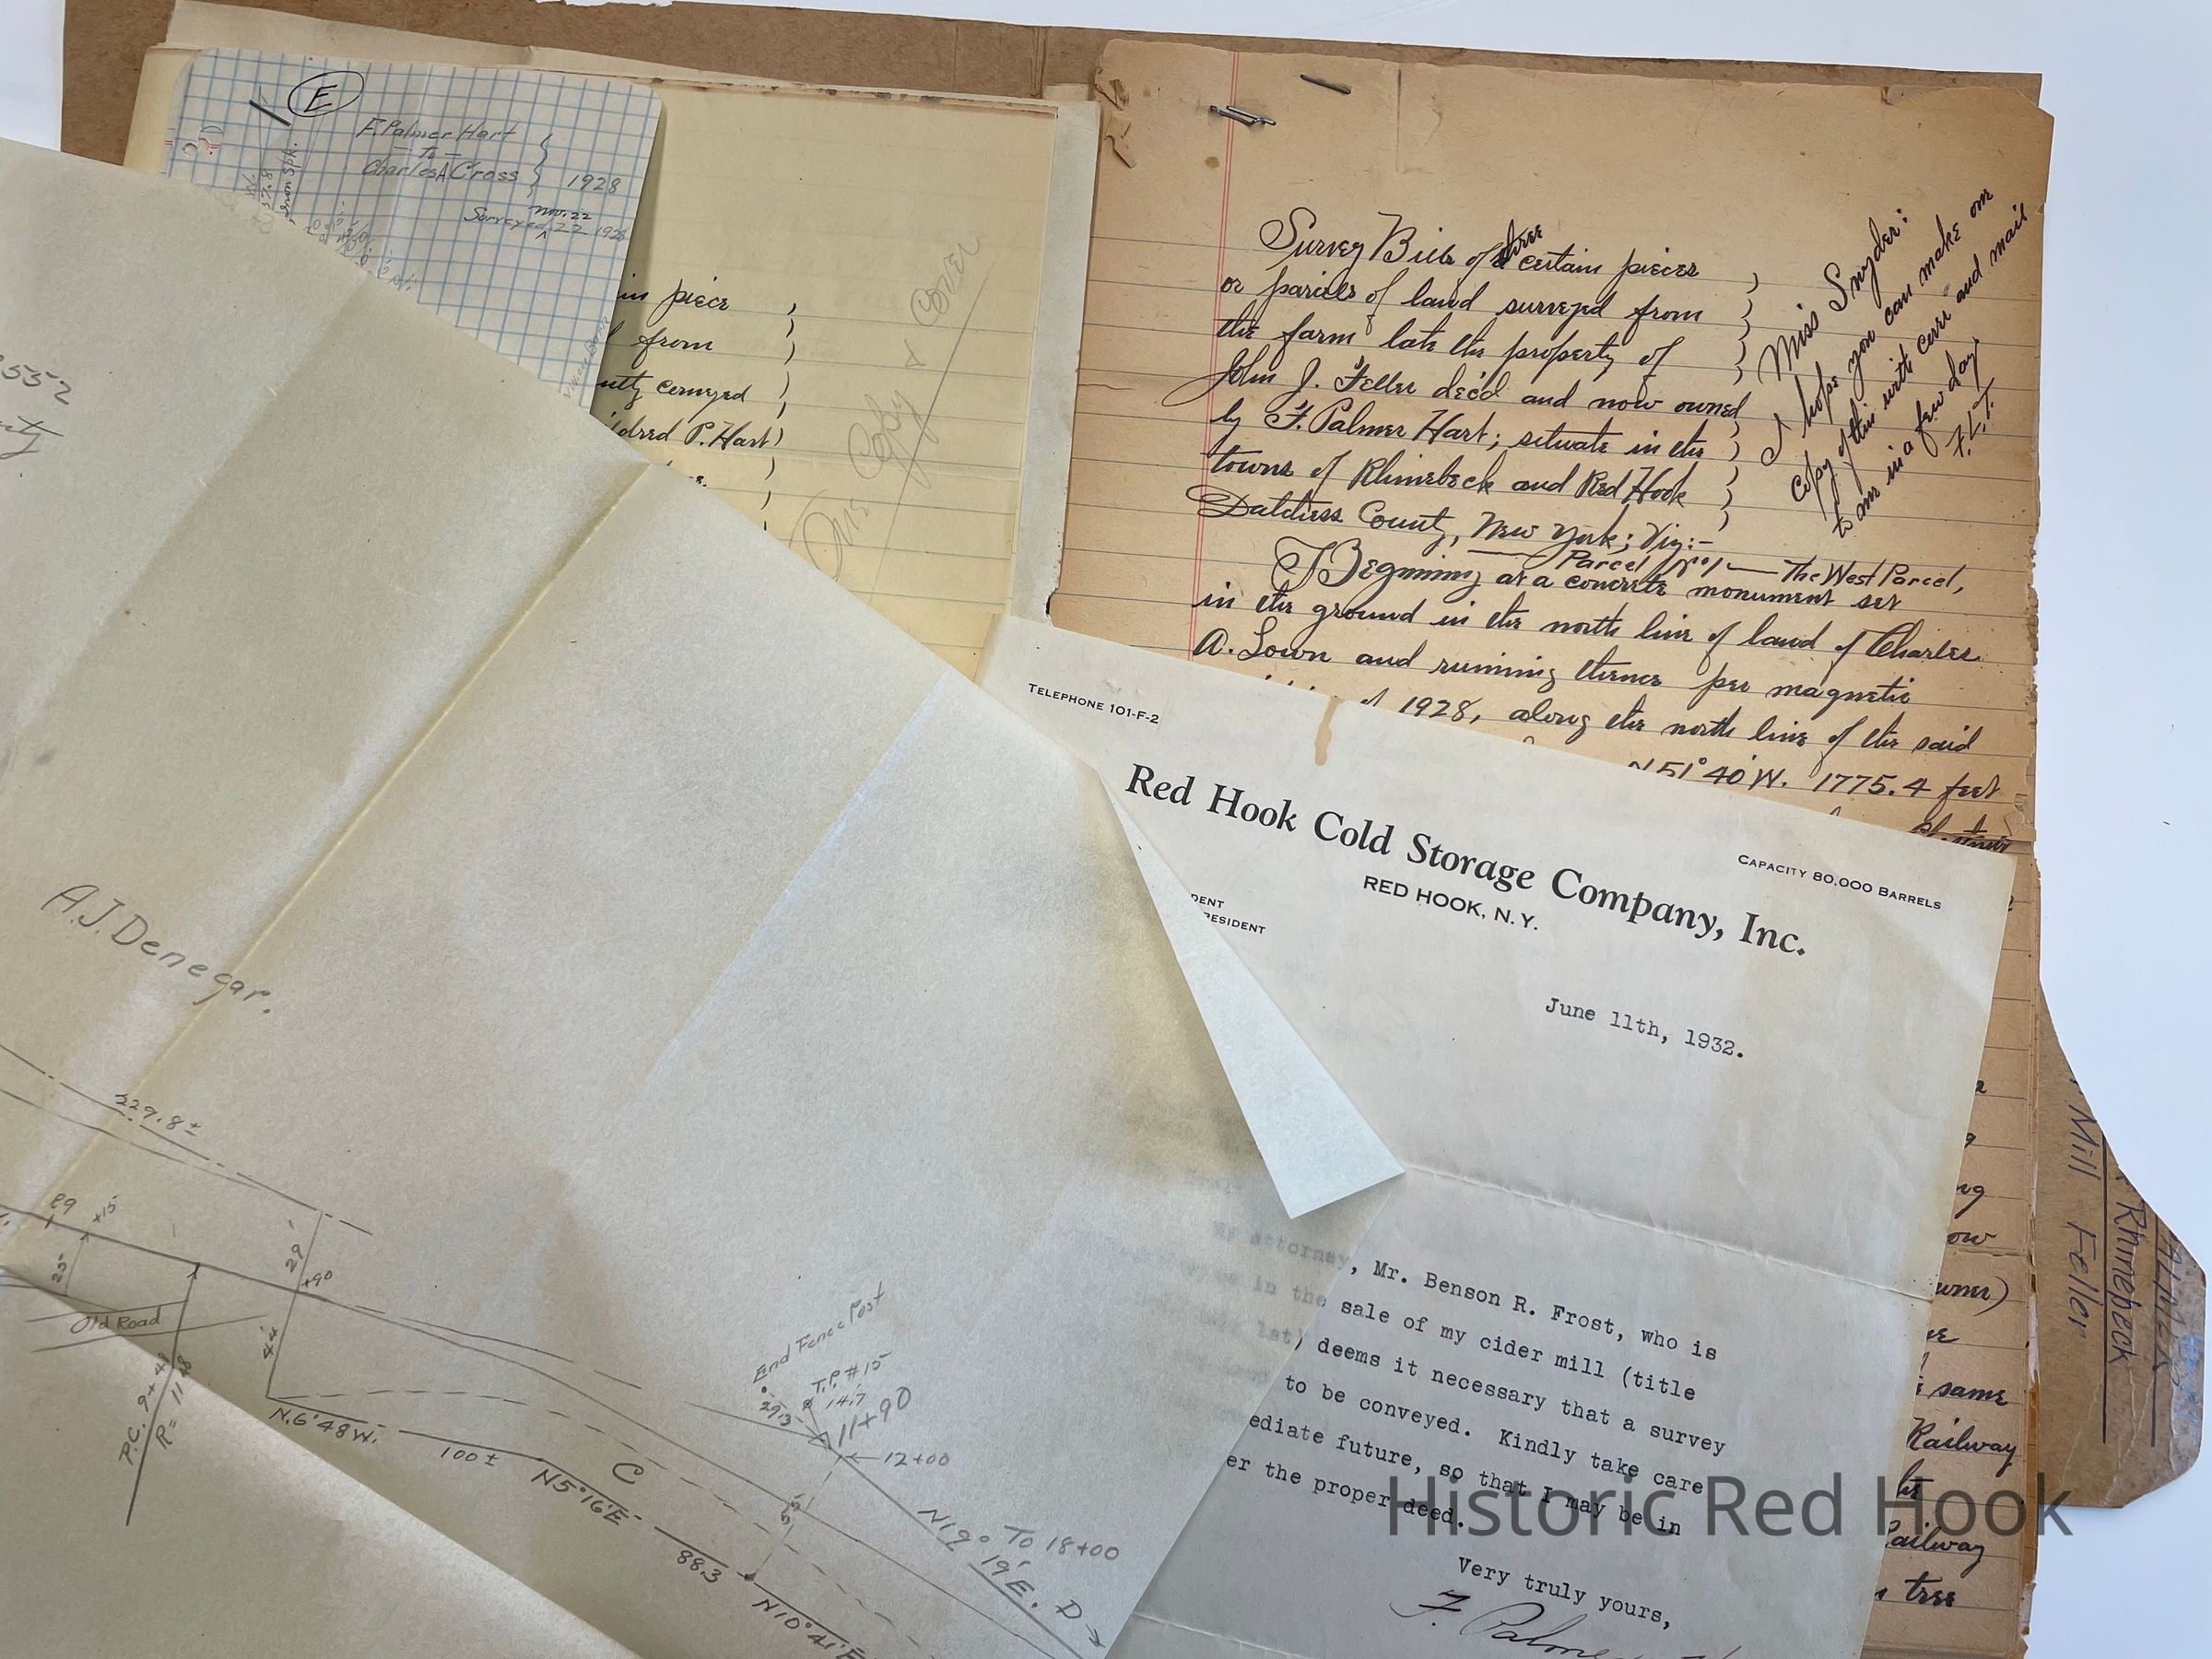 E
F. Palmer Hart
- to -
Charles A Cross
1928
Nov. 22
Surveyed 22 1928
57.8
Iron Spk.
in piece
from
conveyed
ldred P. Hart)
One Copy & Cover
Survey Bill of three certain pieces
or parcels of land surveyed from
the farm late the property of
John J. Feller dec'd and now owned
by F. Palmer Hart; situate in the
towns of Rhinebeck and Red Hook
Dutchess County, New York; Viz:-
Parcel No 1 — The West Parcel,
Beginning at a concrete monument set
in the ground in the north line of land of Charles
A. Lown and running thence per magnetic
of 1928, along the north line of the said
N51°40'W. 1775.4 feet
Miss Snyder:
I hope you can make me
copy of this with cover and mail
to me in a few days.
F.L.T.
ow
owner)
same
Railway
Railway
tree
Rhinebeck
Mill Feller
TELEPHONE 101-F-2
CAPACITY 80,000 BARRELS
Red Hook Cold Storage Company, Inc.
RED HOOK, N. Y.
DENT
RESIDENT
June 11th, 1932.
My attorney, Mr. Benson R. Frost, who is
in the sale of my cider mill (title
1st) deems it necessary that a survey
to be conveyed. Kindly take care
ediate future, so that I may be in
er the proper deed.
Very truly yours,
F. Palme
5552
A.J. Denegar.
229.8±
89
+15
25'
29'
+90
44'
Old Road
P.C. 9+48
R= 11
N.6°48'W.
100±
C
N5°16'E
88.3
N10°41'E
End Fence Post
T.P. #15
14.7
29.3
11+90
12+00
N19°19'E. D
To 18+00
Historic Red Hook